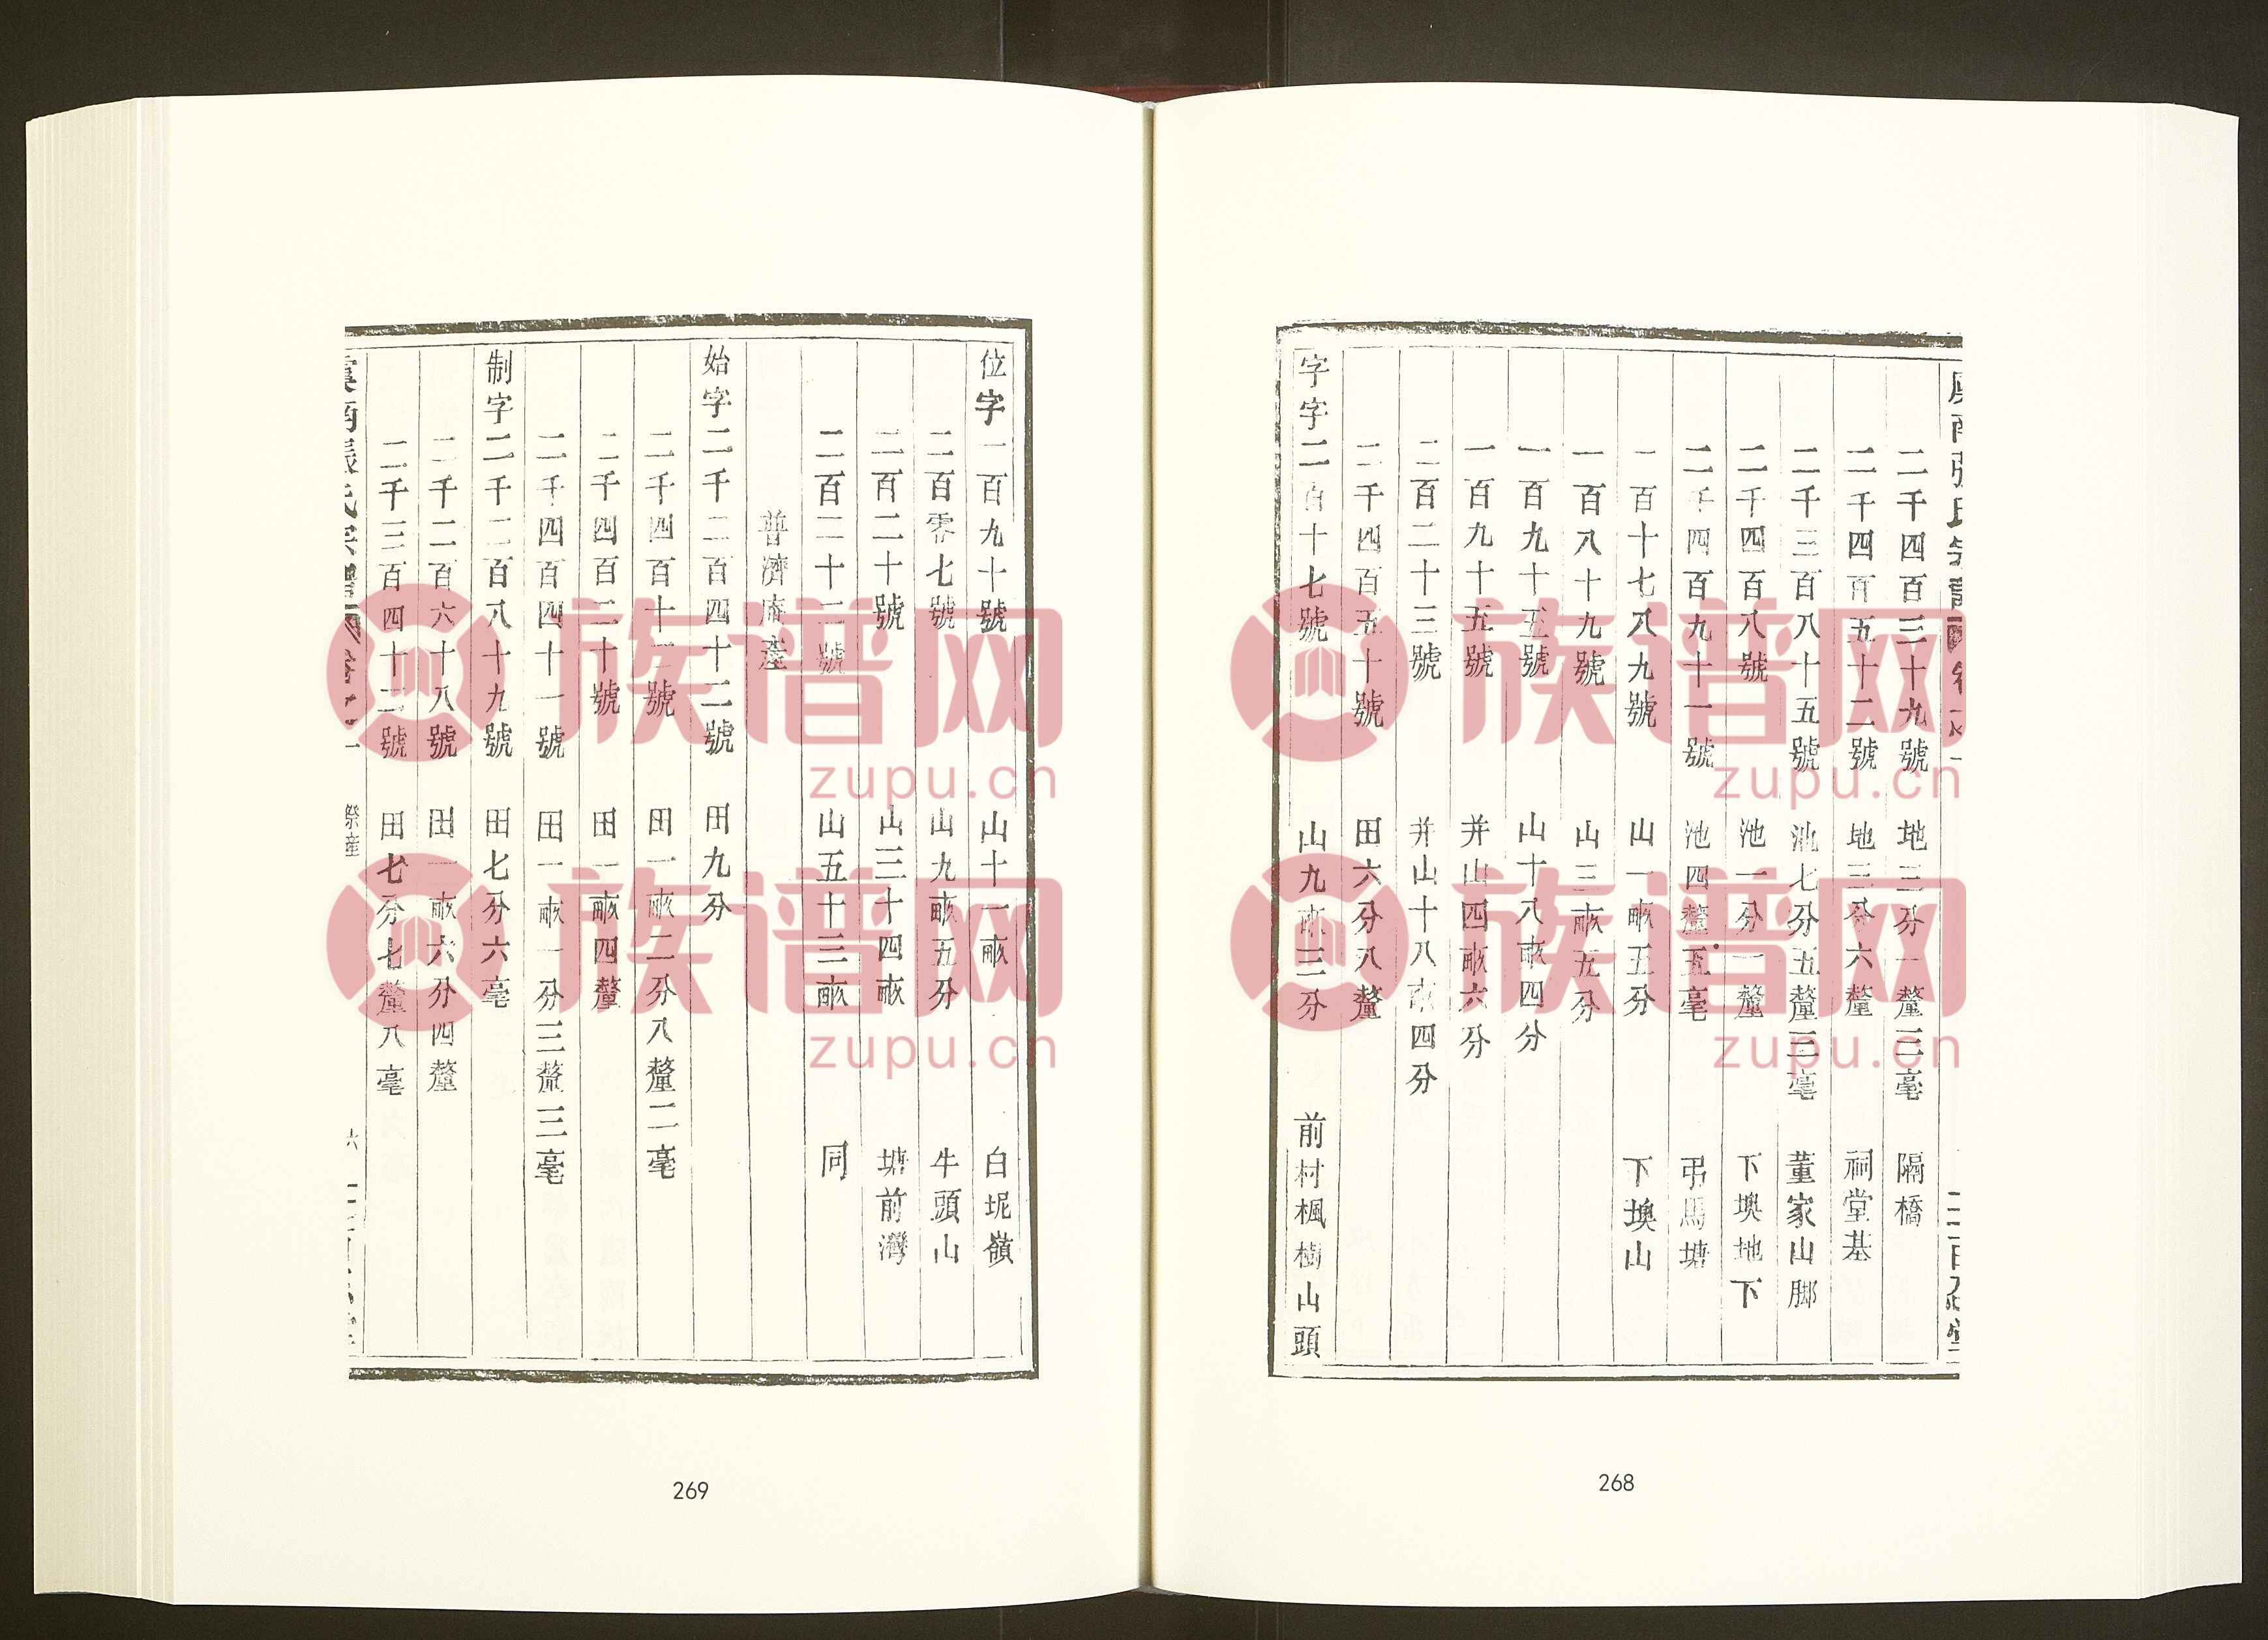 二千四百三十九號 地三分一釐三毫 隔橋
二千四百五十二號 地三分六釐 祠堂基
二千三百八十五號 池七分五釐三毫 董家山脚
二千四百八號 池一分一釐 下墺地下
二千四百九十一號 池四釐五毫 弔馬塘
一百十七八九號 山一畝五分 下墺山
一百八十九號 山三畝五分
一百九十五號 山十八畝四分
一百九十五號 并山四畝六分
二百二十三號 并山十八畝四分
二千四百五十號 田六分八釐
字字二百十七號 山九畝三分 前村楓樹山頭
268
位字一百九十號 山十一畝 白坭嶺
二百零七號 山九畝五分 牛頭山
二百二十號 山三十四畝 塘前灣
二百二十二號 山五十三畝 同
普濟庵產
始字二千二百四十二號 田九分
二千四百十二號 田一畝二分八釐二毫
二千四百二十號 田一畝四釐
二千四百四十一號 田一畝一分三釐三毫
制字二千二百八十九號 田七分六毫
二千二百六十八號 田一畝六分四釐
二千三百四十二號 田七分七釐八毫
祭產 六
269
族谱网
zupu.cn
族谱网
zupu.cn
族谱网
zupu.cn
族谱网
zupu.cn